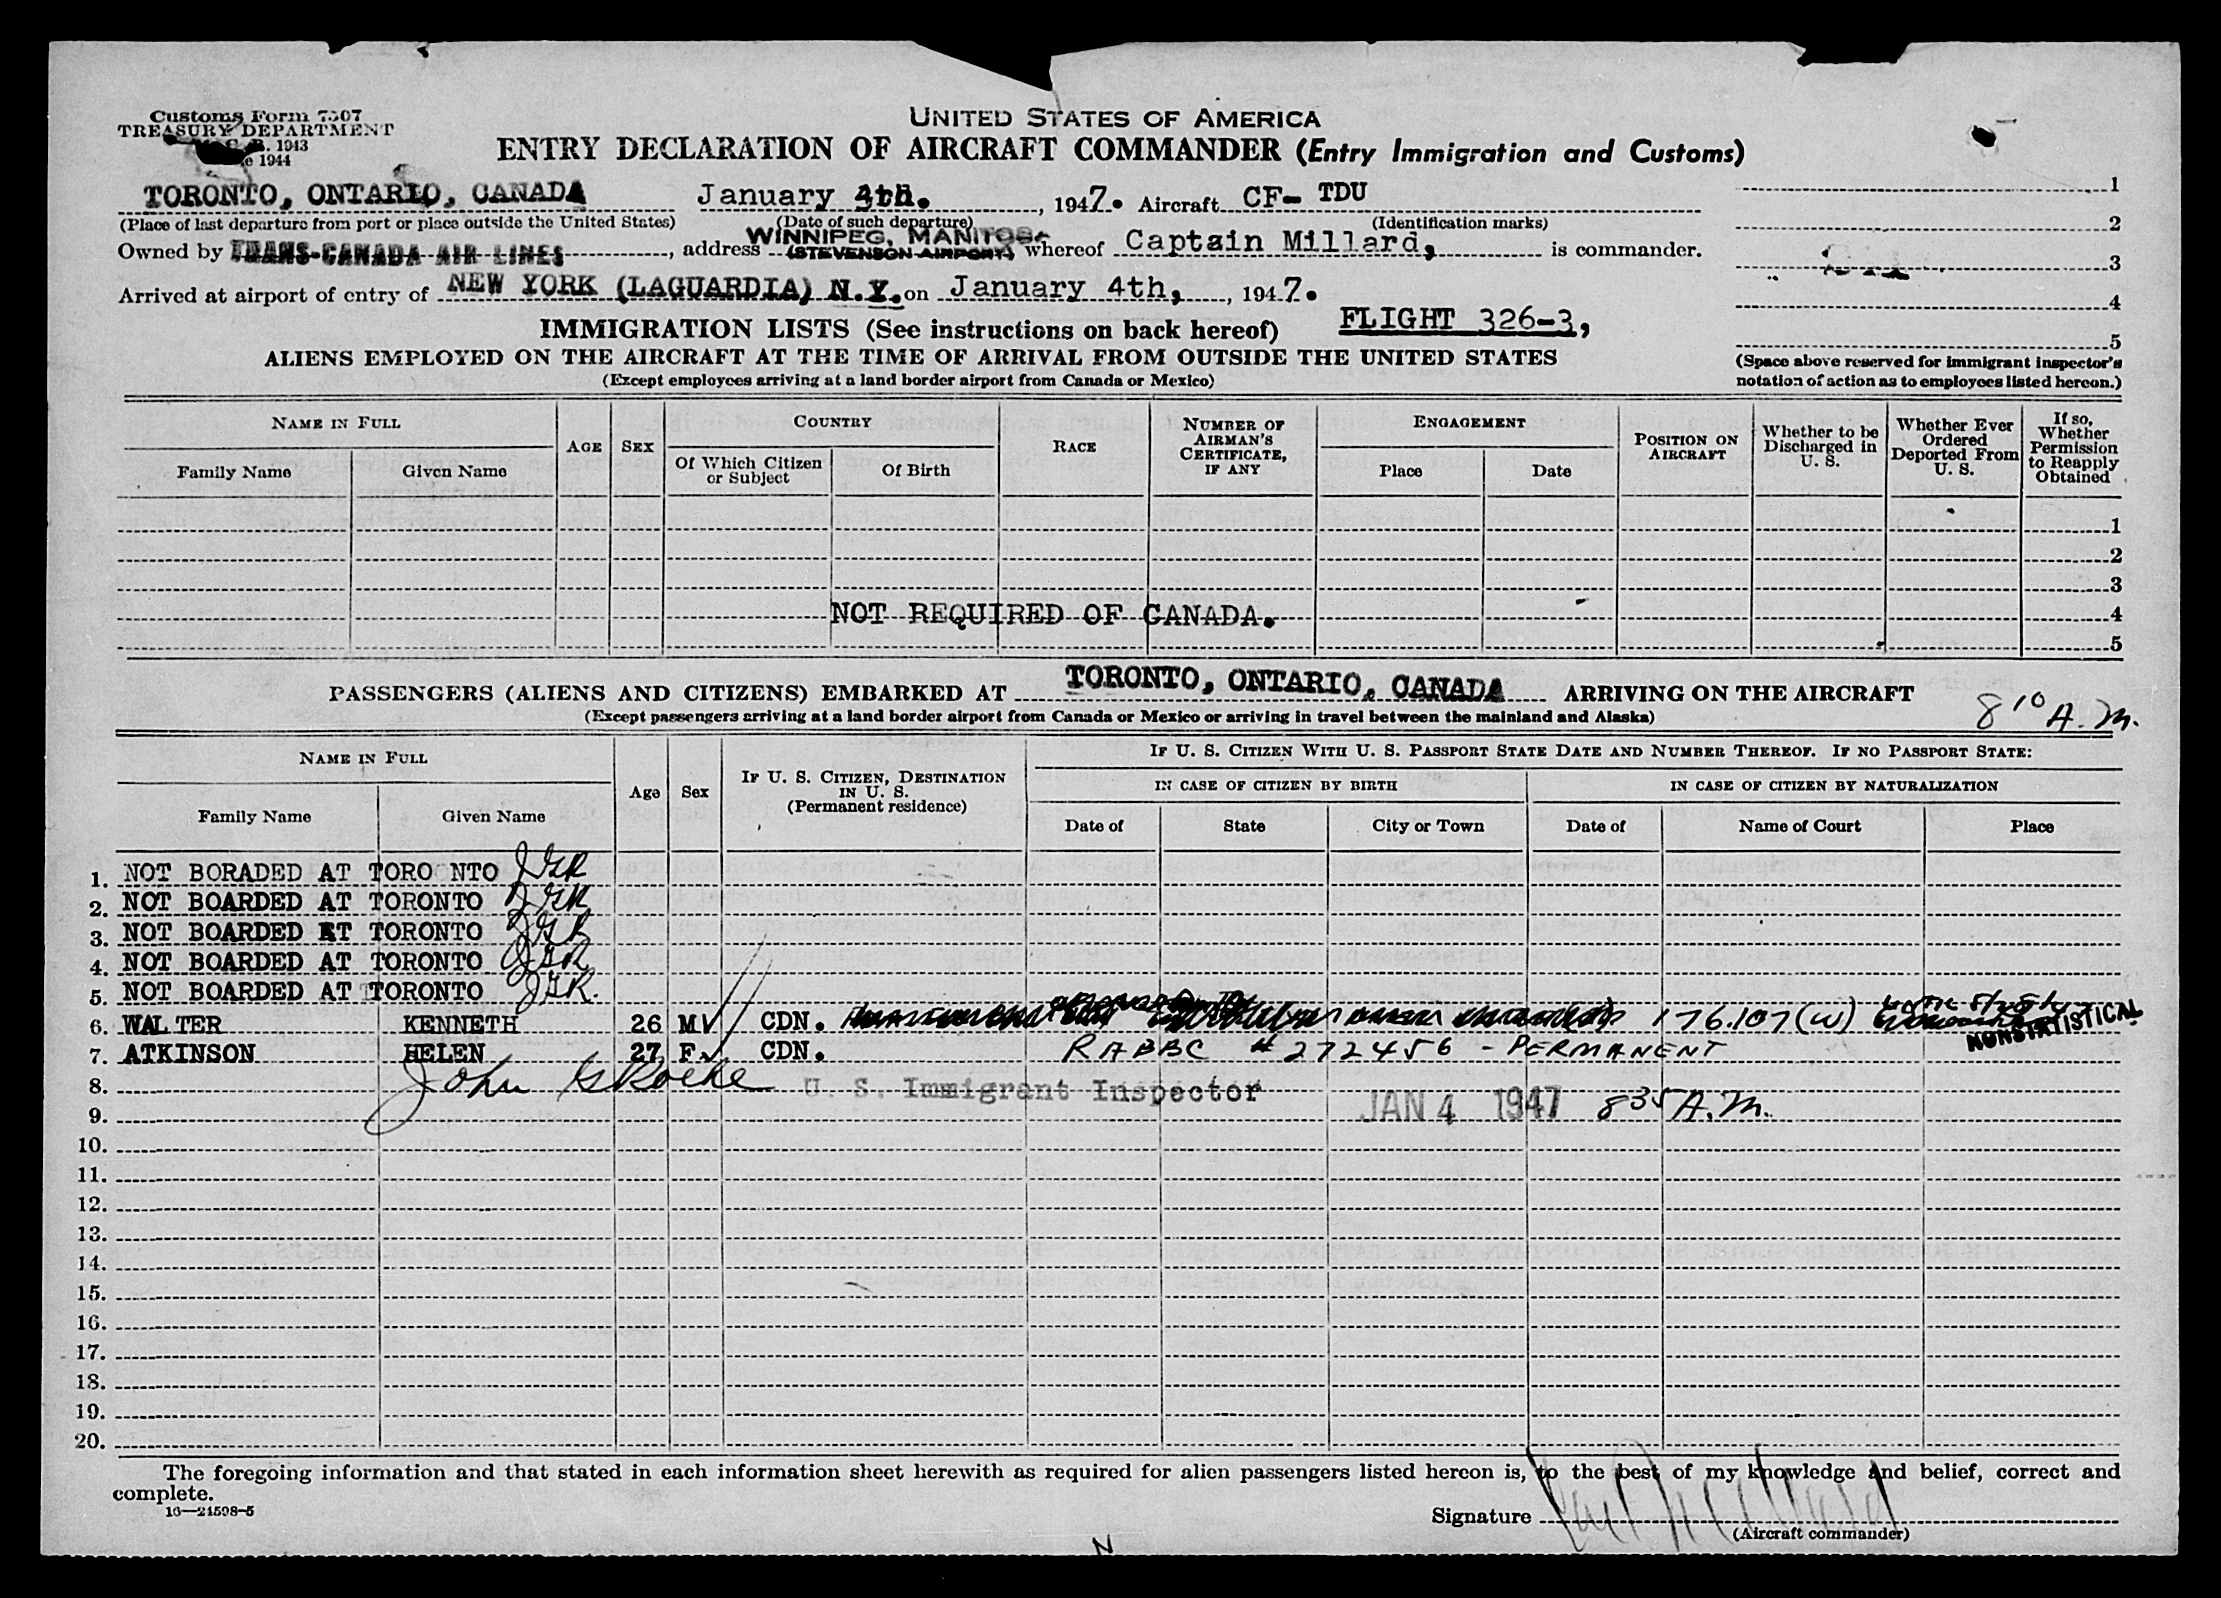 Customs Form 7507
TREASURY DEPARTMENT
1943
1944
UNITED STATES OF AMERICA
ENTRY DECLARATION OF AIRCRAFT COMMANDER (Entry Immigration and Customs)
TORONTO, ONTARIO, CANADA January 4th. , 1947. Aircraft CF- TDU
(Place of last departure from port or place outside the United States) (Date of such departure) (Identification marks)
WINNIPEG, MANITOBA
Owned by TRANS-CANADA AIR LINES , address (STEVENSON AIRPORT) whereof Captain Millard, is commander.
Arrived at airport of entry of NEW YORK (LAGUARDIA) N.Y. on January 4th, , 1947.
1
2
3
4
5
(Space above reserved for immigrant inspector's
notation of action as to employees listed hereon.)
IMMIGRATION LISTS (See instructions on back hereof) FLIGHT 326-3,
ALIENS EMPLOYED ON THE AIRCRAFT AT THE TIME OF ARRIVAL FROM OUTSIDE THE UNITED STATES
(Except employees arriving at a land border airport from Canada or Mexico)
NAME IN FULL
Family Name Given Name
AGE
SEX
COUNTRY
Of Which Citizen or Subject
Of Birth
RACE
NUMBER OF AIRMAN'S CERTIFICATE, IF ANY
ENGAGEMENT
Place Date
POSITION ON AIRCRAFT
Whether to be Discharged in U. S.
Whether Ever Ordered Deported From U. S.
If so, Whether Permission to Reapply Obtained
1
2
3
NOT REQUIRED OF CANADA. 4
5
PASSENGERS (ALIENS AND CITIZENS) EMBARKED AT TORONTO, ONTARIO, CANADA ARRIVING ON THE AIRCRAFT
(Except passengers arriving at a land border airport from Canada or Mexico or arriving in travel between the mainland and Alaska)
8 10 A.M.
NAME IN FULL
Family Name Given Name
Age
Sex
IF U. S. CITIZEN, DESTINATION IN U. S.
(Permanent residence)
IF U. S. CITIZEN WITH U. S. PASSPORT STATE DATE AND NUMBER THEREOF. IF NO PASSPORT STATE:
IN CASE OF CITIZEN BY BIRTH IN CASE OF CITIZEN BY NATURALIZATION
Date of State City or Town Date of Name of Court Place
1. NOT BORADED AT TORO NTO JGR
2. NOT BOARDED AT TORONTO JGR
3. NOT BOARDED AT TORONTO JGR
4. NOT BOARDED AT TORONTO JGR
5. NOT BOARDED AT TORONTO JGR.
6. WALTER KENNETH 26 M CDN. 176.107(W) NONSTATISTICAL
7. ATKINSON HELEN 27 F CDN. RABBC # 272456 - PERMANENT
8. John G Roche U. S. Immigrant Inspector
9. JAN 4 1947 8 35 A.M.
10.
11.
12.
13.
14.
15.
16.
17.
18.
19.
20.
The foregoing information and that stated in each information sheet herewith as required for alien passengers listed hereon is, to the best of my knowledge and belief, correct and
complete.
16—21598-5
Signature
(Aircraft commander)
N